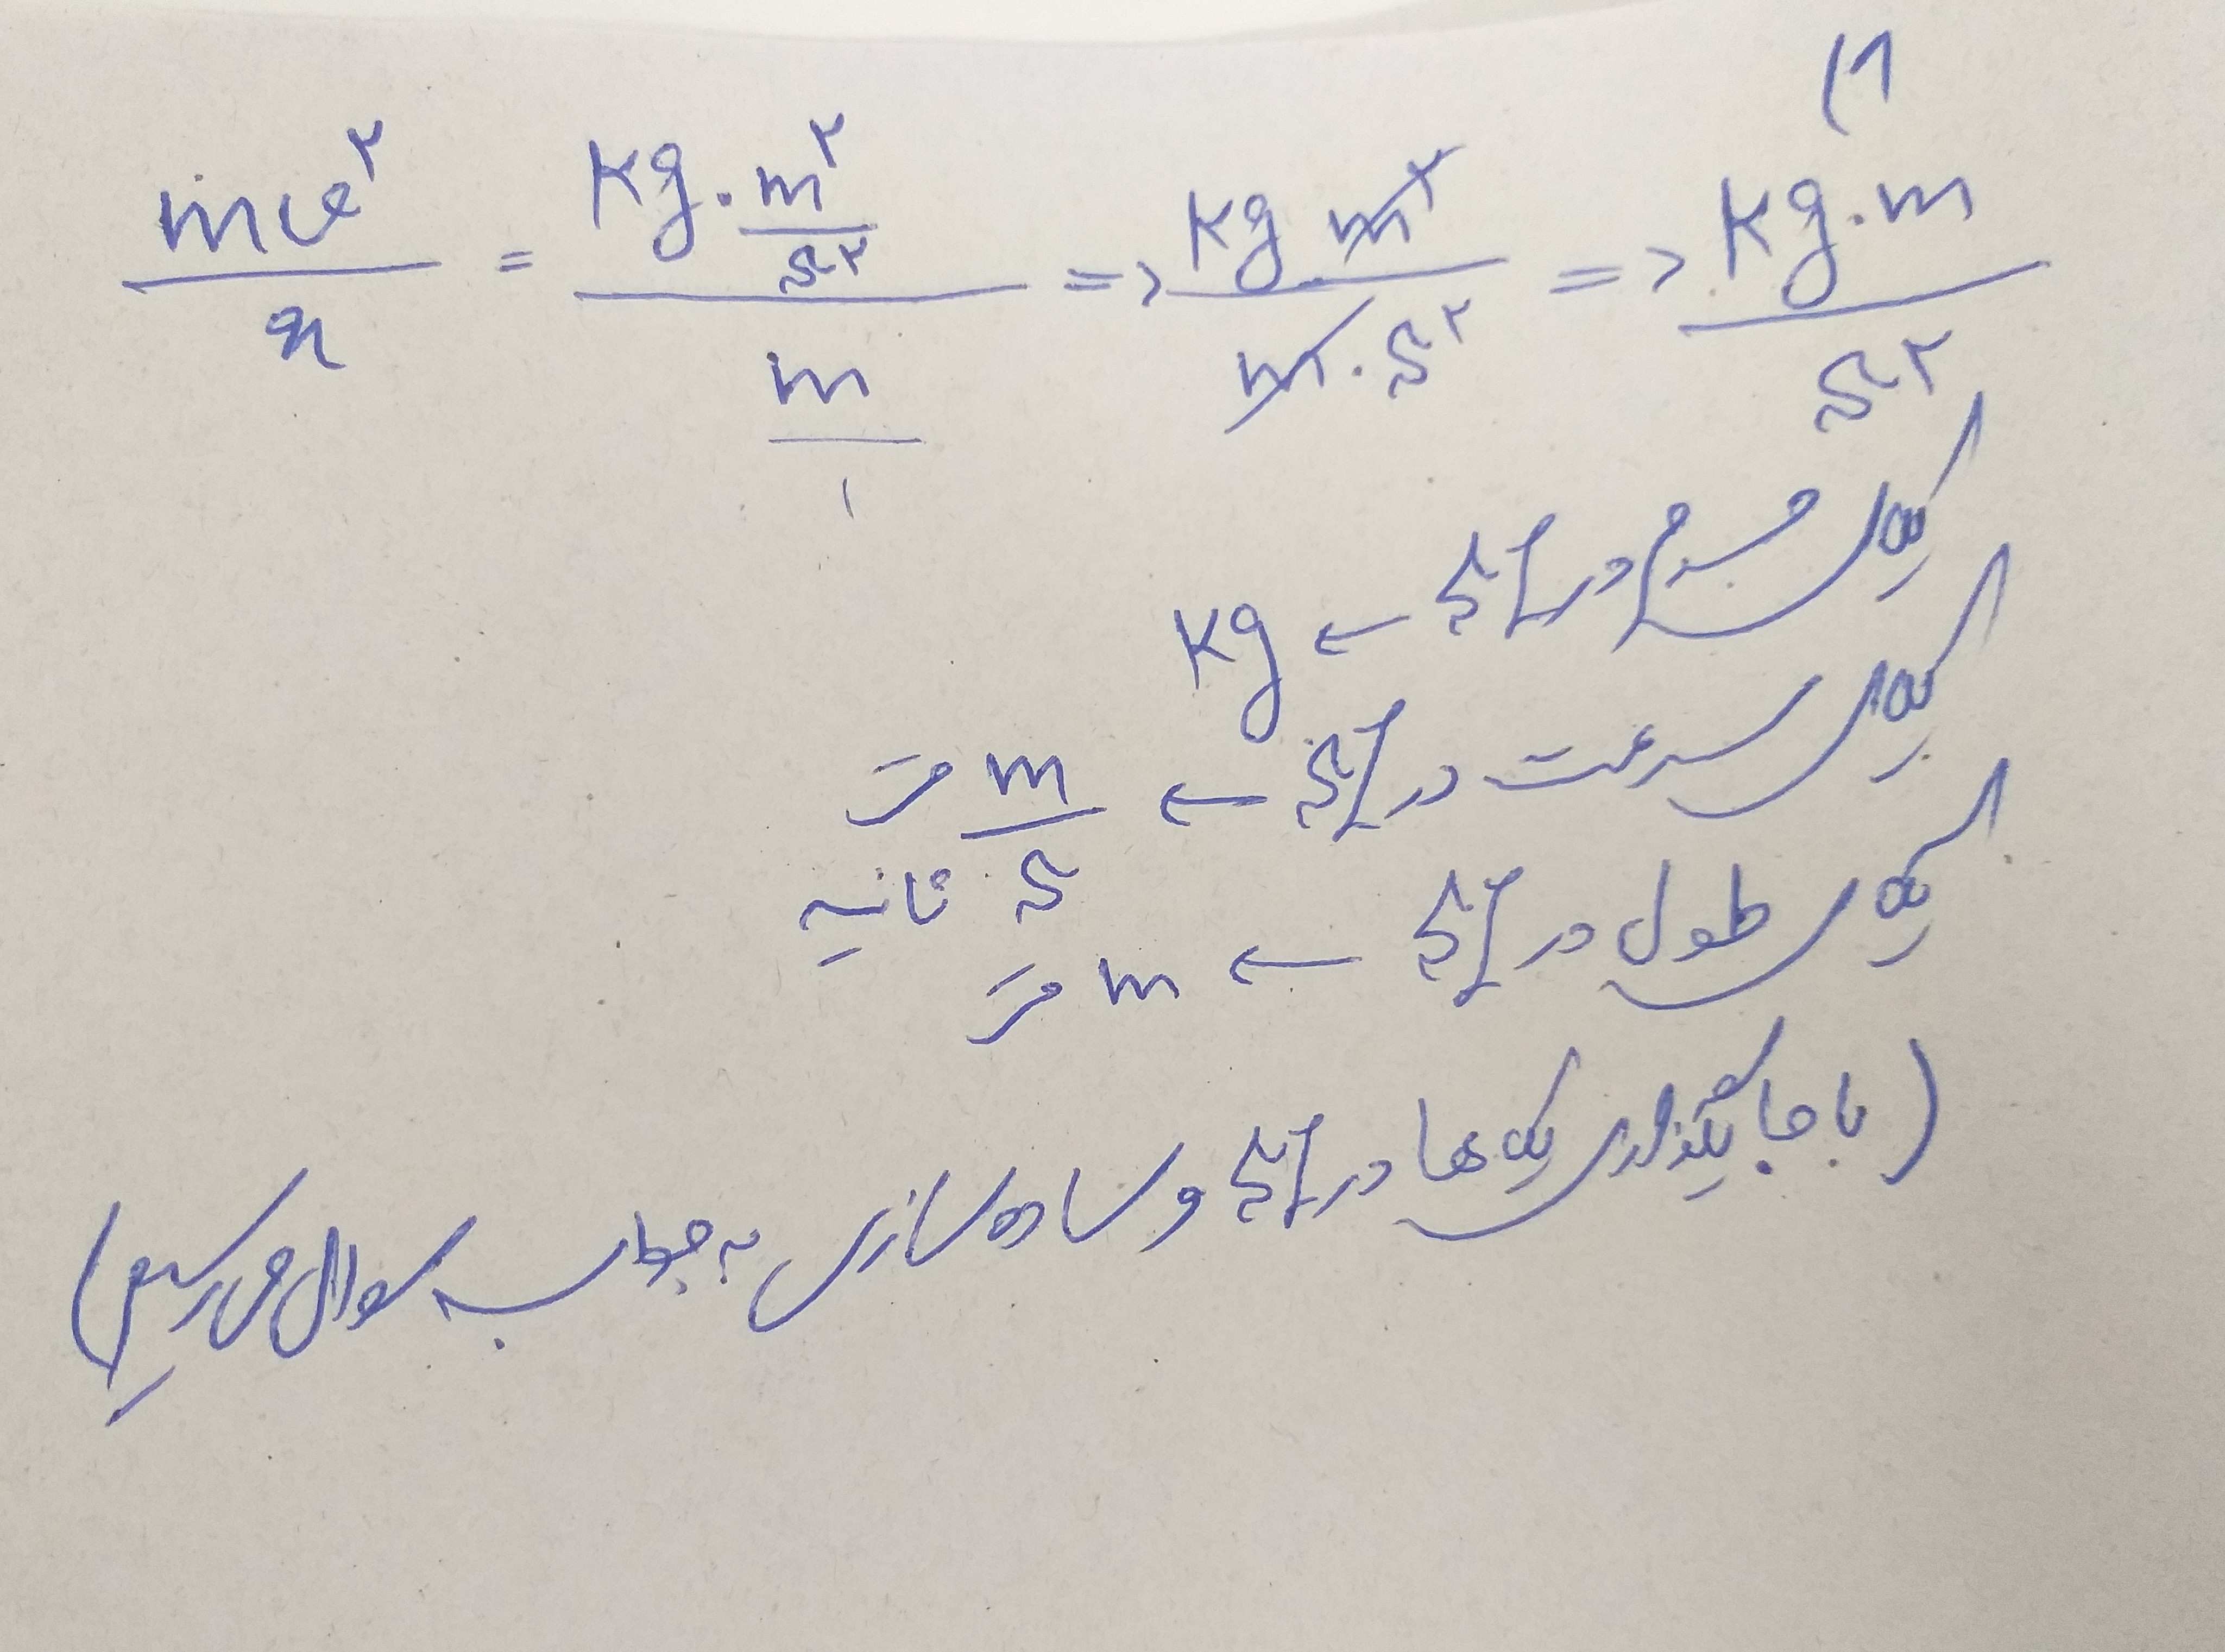 ۱)
mv²/x = (kg.m²/s²)/(m/۱) => kg m²/m.s² => kg.m/s²
یکای جرم در SI ← kg
یکای سرعت در SI ← m/s متر ثانیه
یکای طول در SI ← m متر
(با جایگذاری یکاها در SI و ساده سازی به جواب سوال می‌رسیم)